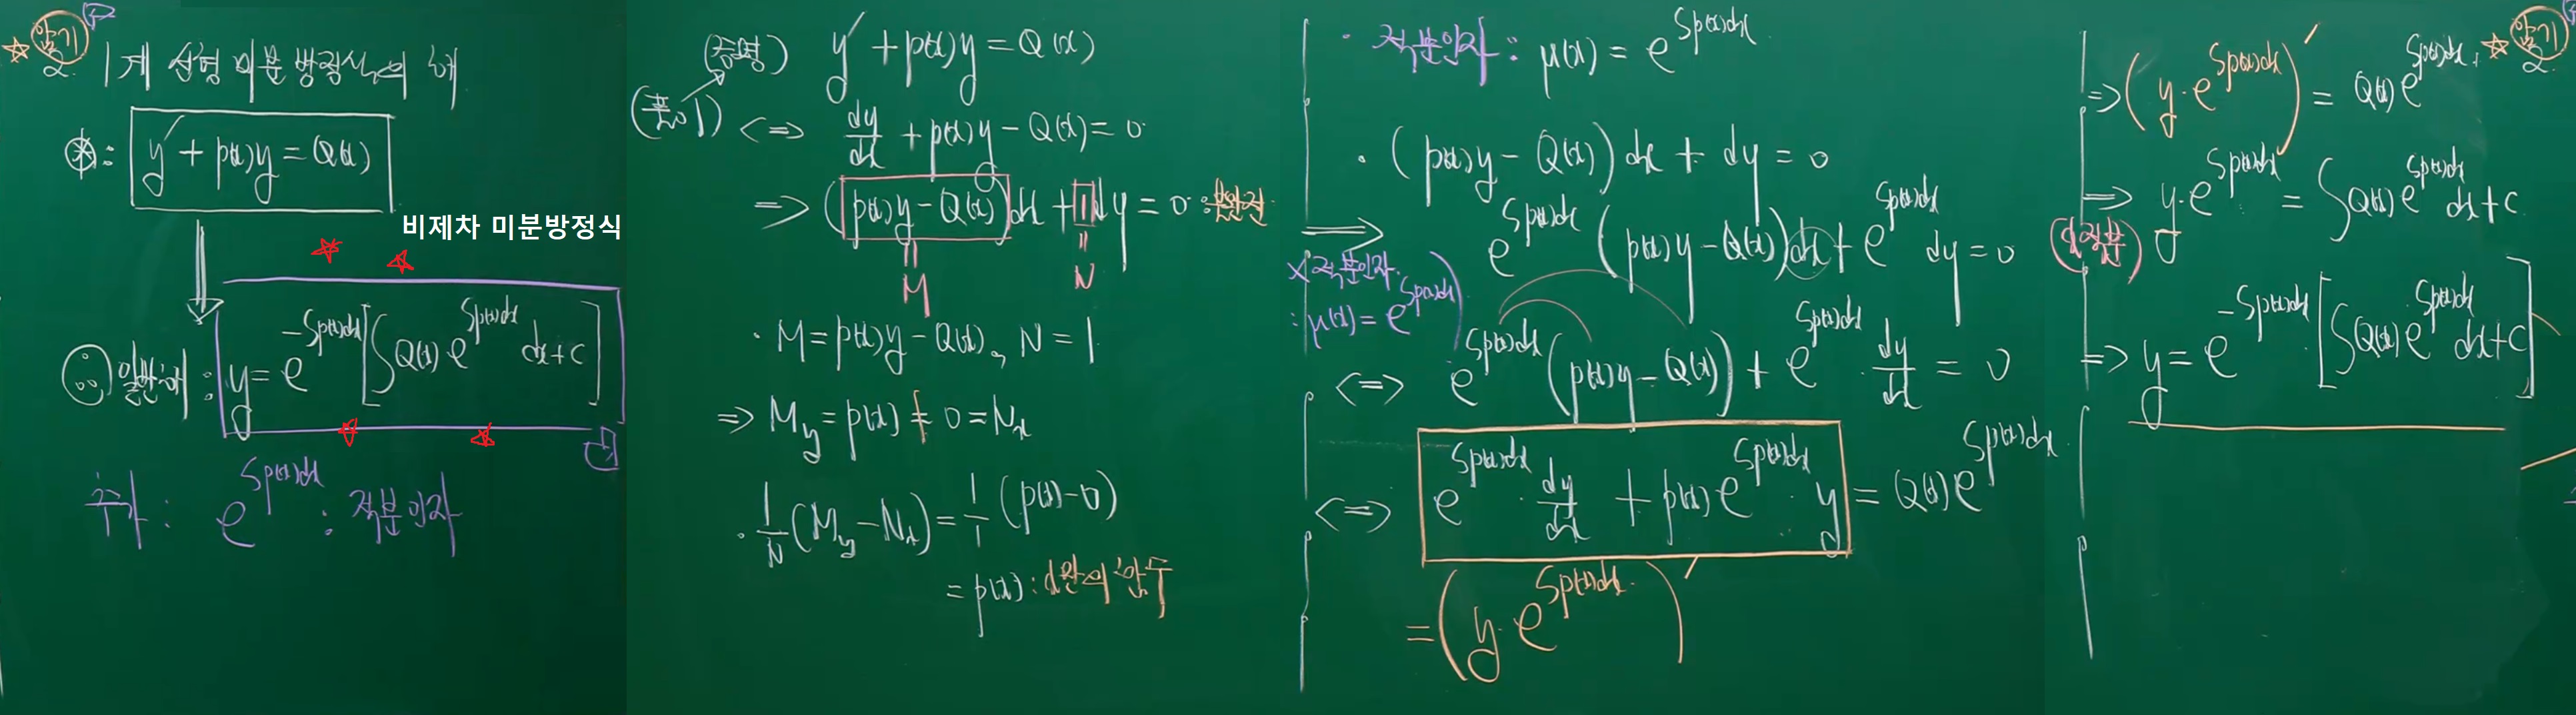 ☆ 암기
2. 1계 선형 미분방정식의 해
⊛: y' + p(x)y = Q(x)
비제차 미분방정식
일반해: y = e^{-∫p(x)dx}[∫Q(x)e^{∫p(x)dx}dx+c]
추가: e^{∫p(x)dx} : 적분인자
(증명) y' + p(x)y = Q(x)
(풀이) <=> dy/dx + p(x)y - Q(x) = 0
=> (p(x)y - Q(x))dx + 1dy = 0 : 불완전
= M
= N
· M = p(x)y - Q(x), N = 1
=> M_y = p(x) ≠ 0 = N_x
· 1/N (M_y - N_x) = 1/1 (p(x) - 0)
= p(x) : x만의 함수
· 적분인자 : μ(x) = e^{∫p(x)dx}
· (p(x)y - Q(x))dx + dy = 0
=> e^{∫p(x)dx}(p(x)y - Q(x))dx + e^{∫p(x)dx}dy = 0
×적분인자
: μ(x) = e^{∫p(x)dx}
<=> e^{∫p(x)dx}(p(x)y - Q(x)) + e^{∫p(x)dx} · dy/dx = 0
<=> e^{∫p(x)dx} · dy/dx + p(x)e^{∫p(x)dx} · y = Q(x)e^{∫p(x)dx}
= (y · e^{∫p(x)dx})'
=> (y · e^{∫p(x)dx})' = Q(x)e^{∫p(x)dx}.
☆ 암기
2.
=> y · e^{∫p(x)dx} = ∫Q(x)e^{∫p(x)dx}dx+c
(x적분)
=> y = e^{-∫p(x)dx} · [∫Q(x)e^{∫p(x)dx}dx+c]